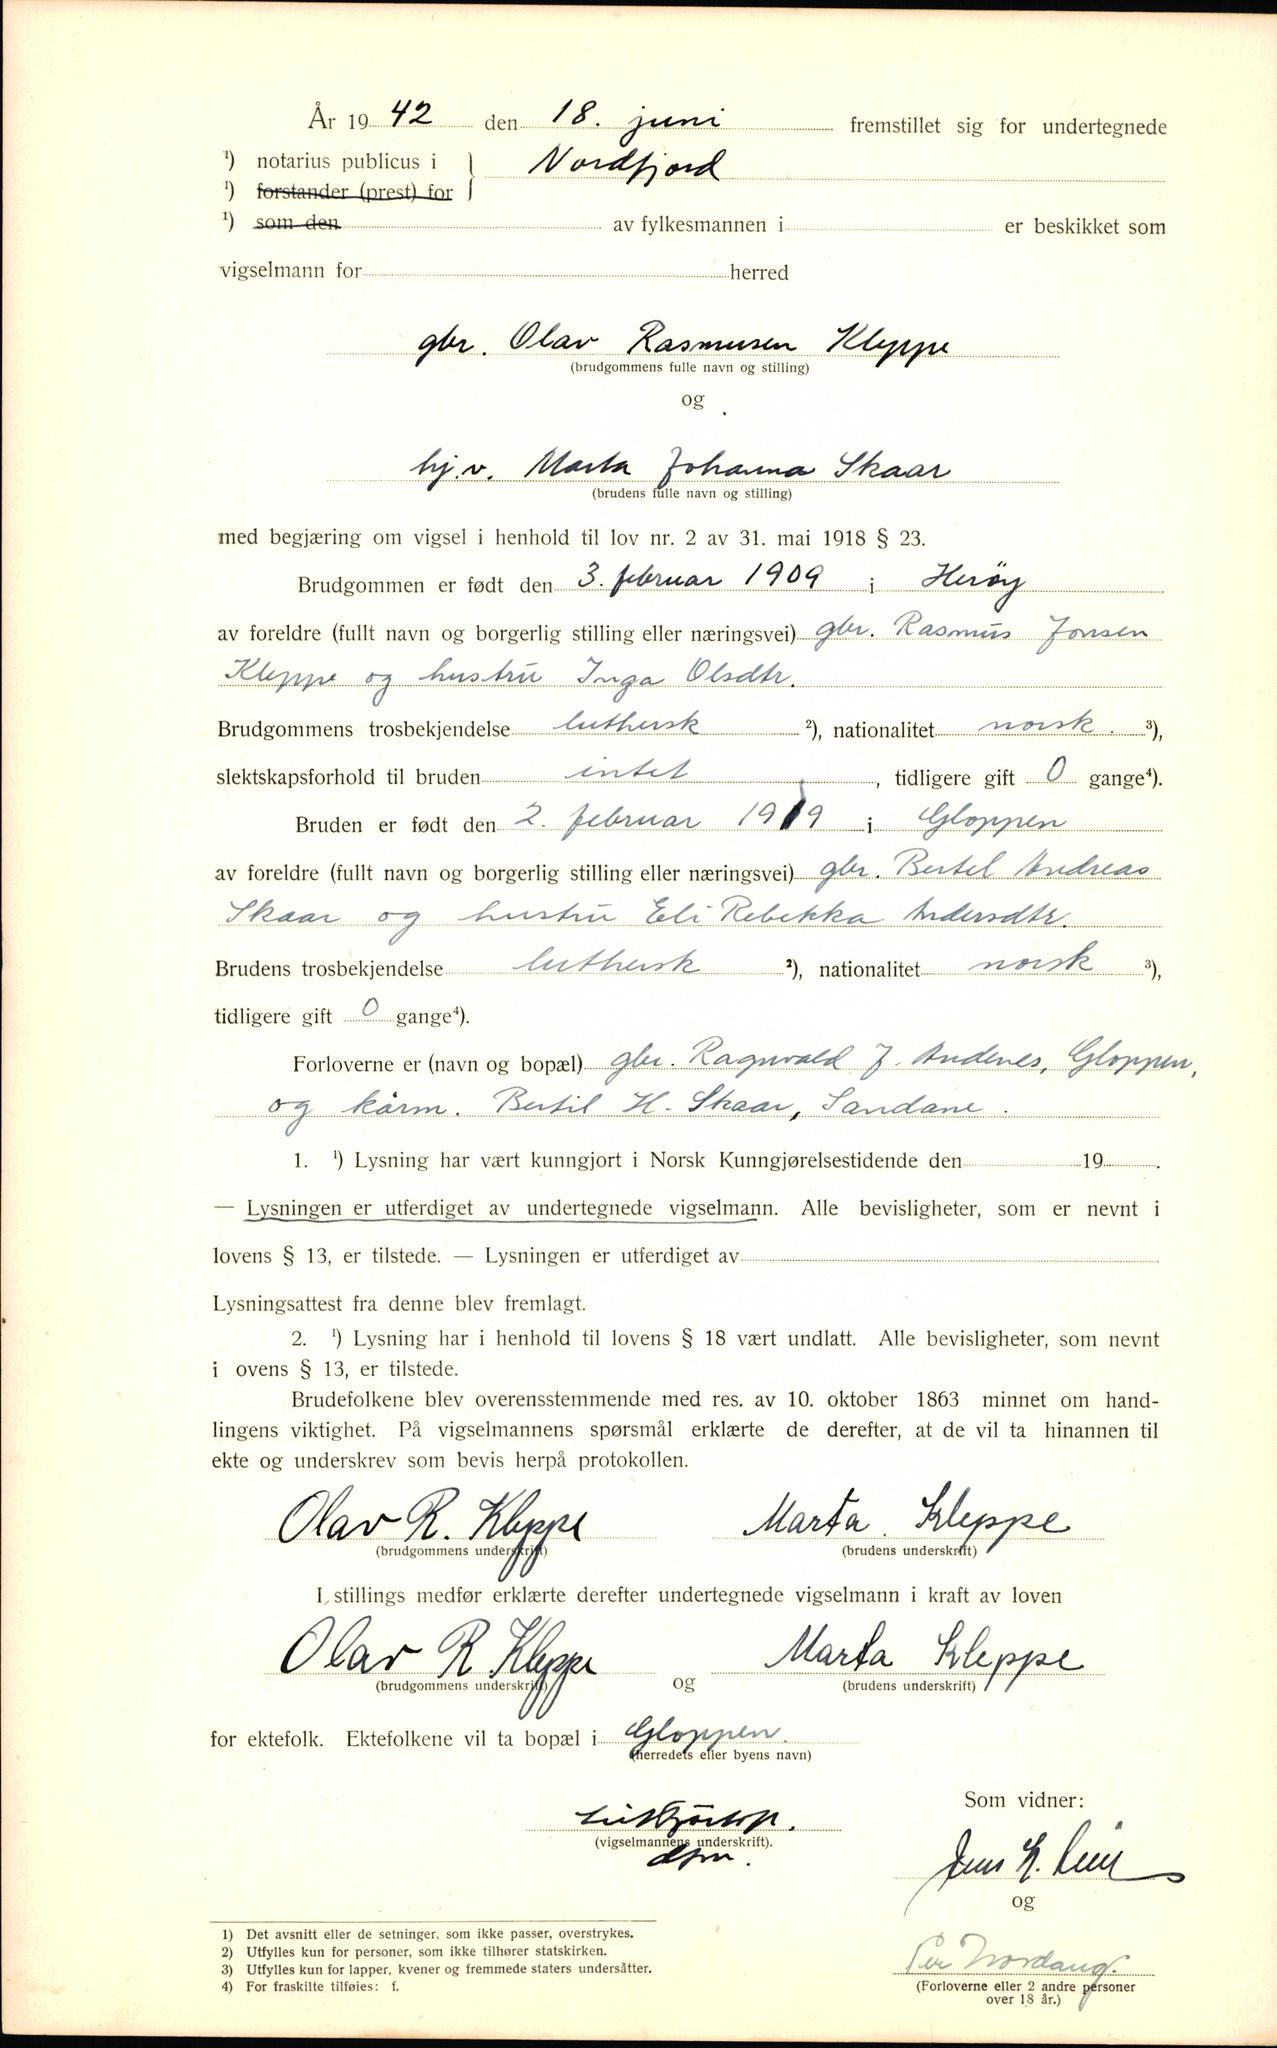 År 1942 den 18. juni fremstillet sig for undertegnede
¹) notarius publicus i } Nordfjord
¹) forstander (prest) for
¹) som den av fylkesmannen i er beskikket som
vigselmann for herred
gbr. Olav Rasmusen Kleppe
(brudgommens fulle navn og stilling)
og
hj.v. Marta Johanna Skaar
(brudens fulle navn og stilling)
med begjæring om vigsel i henhold til lov nr. 2 av 31. mai 1918 § 23.
Brudgommen er født den 3. februar 1909 i Herøy
av foreldre (fullt navn og borgerlig stilling eller næringsvei) gbr. Rasmus Jonsen
Kleppe og hustru Inga Olsdtr.
Brudgommens trosbekjendelse luthersk ²), nationalitet norsk. ³),
slektskapsforhold til bruden intet, tidligere gift 0 gange⁴).
Bruden er født den 2. februar 1919 i Gloppen
av foreldre (fullt navn og borgerlig stilling eller næringsvei) gbr. Bertel Andreas
Skaar og hustru Eli Rebekka Andersdtr.
Brudens trosbekjendelse luthersk ²), nationalitet norsk ³),
tidligere gift 0 gange⁴).
Forloverne er (navn og bopæl) gbr. Ragnvald J. Andenes, Gloppen,
og kårm. Bertil H. Skaar, Sandane.
1. ¹) Lysning har vært kunngjort i Norsk Kunngjørelsestidende den 19 .
— Lysningen er utferdiget av undertegnede vigselmann. Alle bevisligheter, som er nevnt i
lovens § 13, er tilstede. — Lysningen er utferdiget av
Lysningsattest fra denne blev fremlagt.
2. ¹) Lysning har i henhold til lovens § 18 vært undlatt. Alle bevisligheter, som nevnt
i ovens § 13, er tilstede.
Brudefolkene blev overensstemmende med res. av 10. oktober 1863 minnet om hand-
lingens viktighet. På vigselmannens spørsmål erklærte de derefter, at de vil ta hinannen til
ekte og underskrev som bevis herpå protokollen.
Olav R. Kleppe Marta Kleppe
(brudgommens underskrift) (brudens underskrift)
I stillings medfør erklærte derefter undertegnede vigselmann i kraft av loven
Olav R Kleppe Marta Kleppe
(brudgommens underskrift) og (brudens underskrift)
for ektefolk. Ektefolkene vil ta bopæl i Gloppen.
(herredets eller byens navn)
Som vidner:
(vigselmannens underskrift).
dfm.
Jens
og
Per Nordang.
(Forloverne eller 2 andre personer
over 18 år.)
1) Det avsnitt eller de setninger, som ikke passer, overstrykes.
2) Utfylles kun for personer, som ikke tilhører statskirken.
3) Utfylles kun for lapper, kvener og fremmede staters undersåtter.
4) For fraskilte tilføies: f.